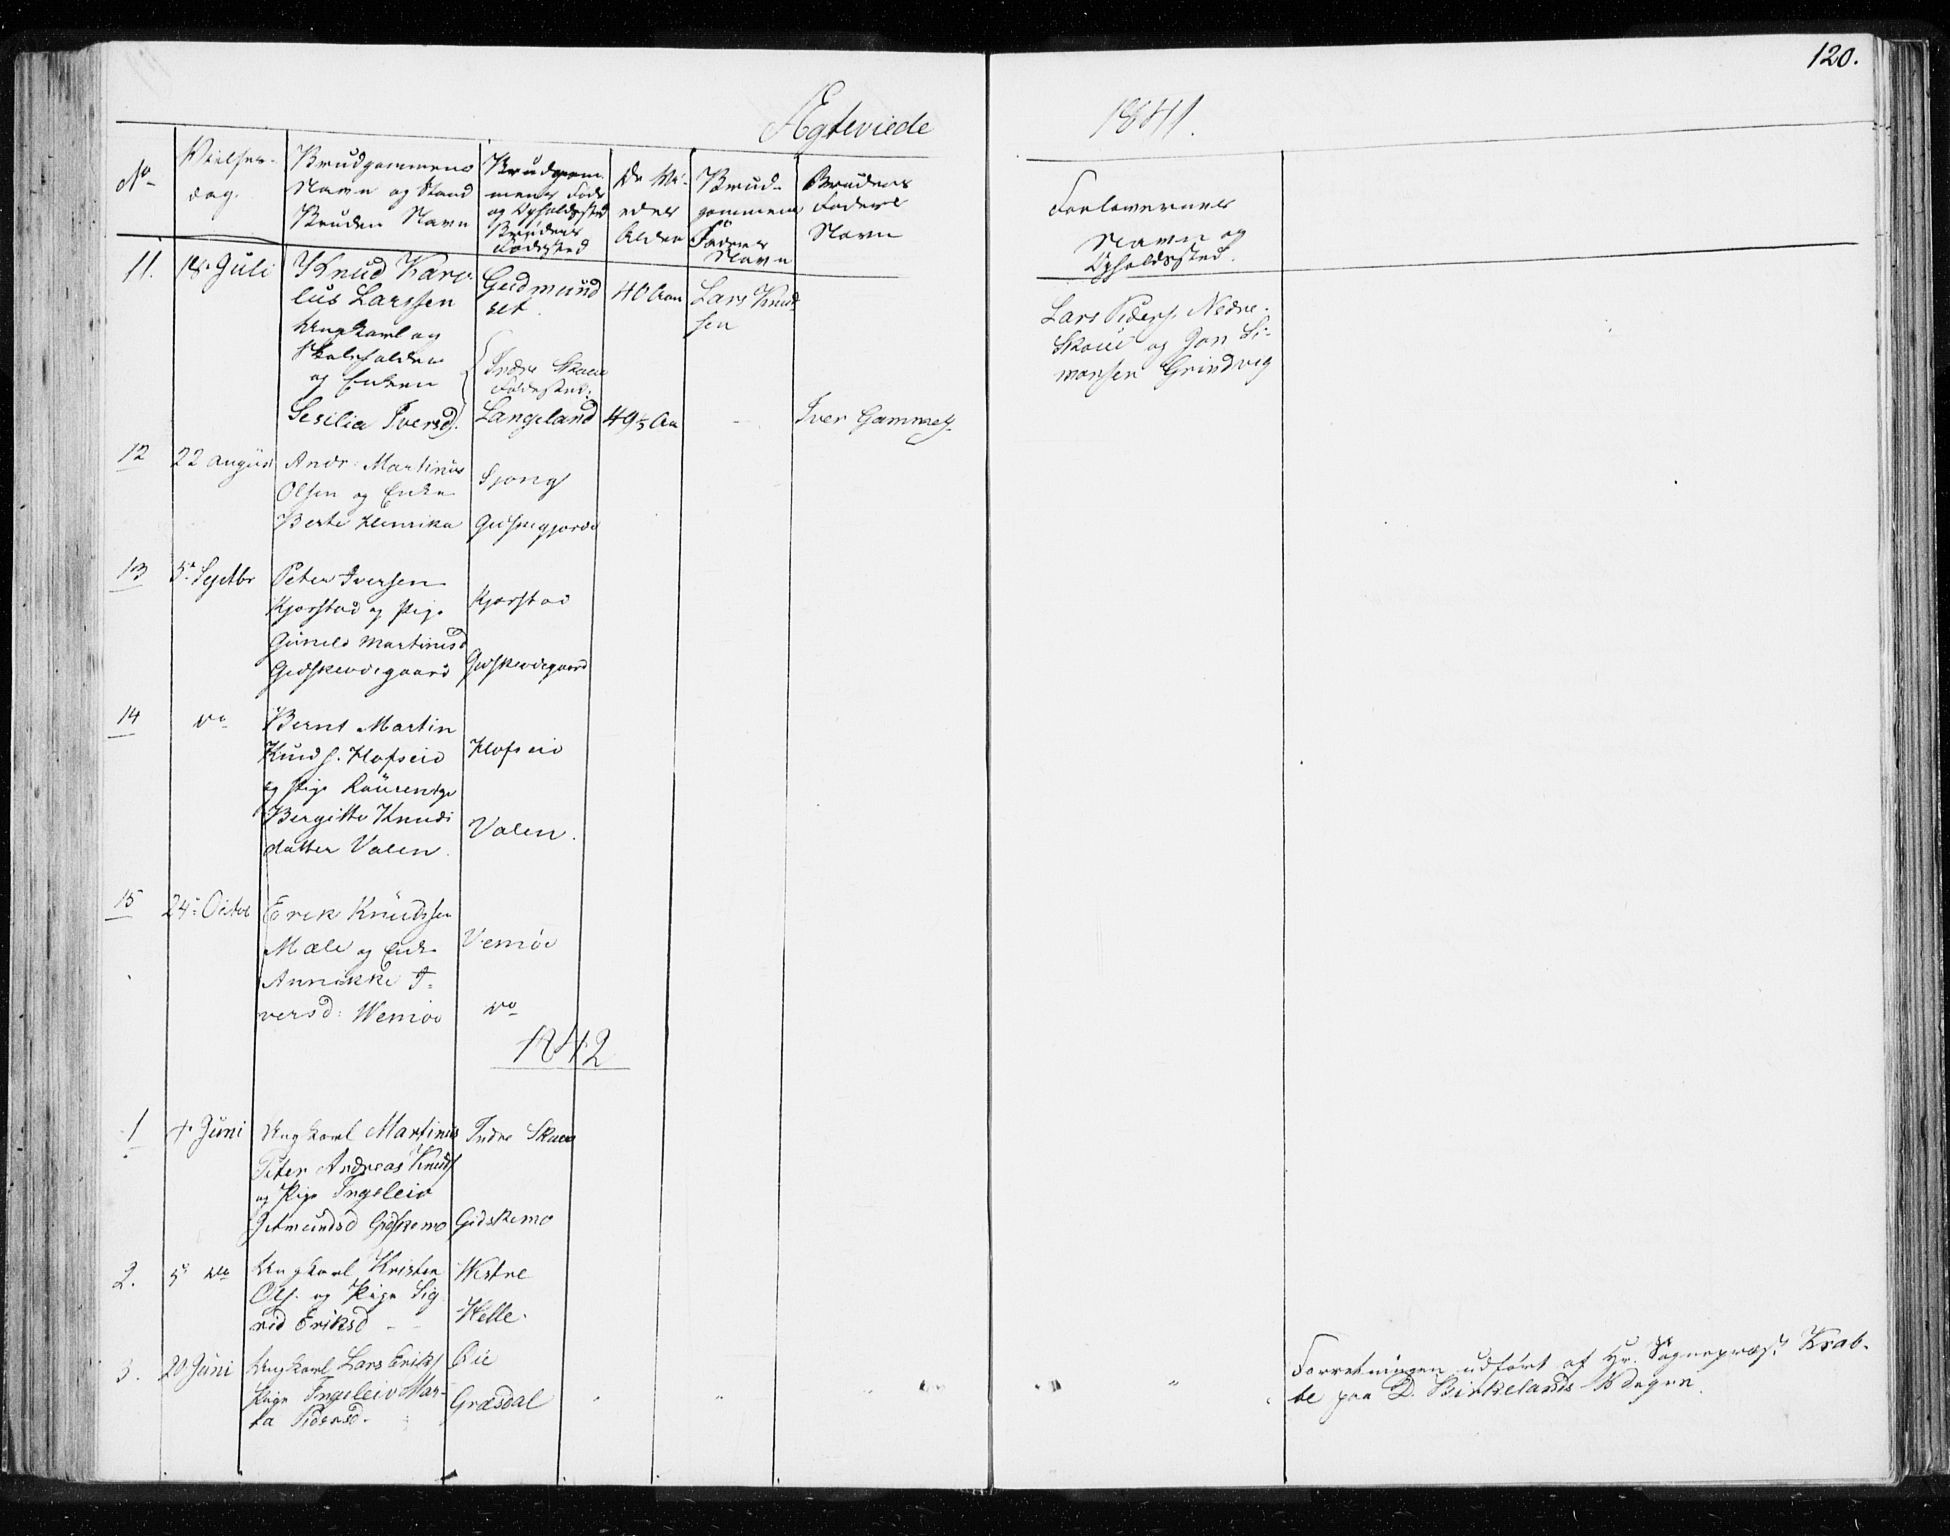 120.
Ægteviede
1841.
No
Vielses-
dag.
Brudgommens
Navn og Stand
Bruden Navn
Brudgom-
mens Føde
og Opholdssted
Brudens
Fødested
De Vi-
edes
Alder
Brud-
gommens
Faders
Navn
Brudens
Faders
Navn
Forlovernes
Navn og
Opholdssted.
11.
18 Juli
Knud Karo-
lus Larssen
Ungkarl og
Skoleholder
og Enken
Sesilia Iversd.
Gudmund
set.
Indre Skaue
Fødested:
Langeland
40 Aar
49
Lars Knud
sen
Iver Gammel
Lars Peders. Nedre
Skoue og Jon Si-
monsen Grindvig
12
22 August
Andr: Martinus
Olsen og Enke
Berte Henrika
Sjong
13
5. Septbr
Peter Iversen
Kjørstad og Pige
Gunild Martinusd
Gidskeodegaard
Kjørstad
Gidskeodegaard
14
do
Bernt Martin
Knuds. Hofseid
og Pige Laurentze
Bergitte Knuds
datter Valen.
Hofseid
Valen.
15
24 Octbr
Erik Knudssen
Mæle og Enke
Annikke I-
versd: Wemøe
Vemøe
do
1842
1
4 Juni
Ungkarl Martinus
Peter Andreas Knuds
og Pige Ingeleiv
Gutmundsd Gidskemo
Indre Skaue
Gidskemo
2.
5 do
Ungkarl Kristen
Ols. og Pige Sig
rid Eriksd
Westre
Helle.
3.
20 Juni
Ungkarl Lars Eriks
Pige Ingeleiv Mar-
ta Pedersd.
Græsdal
Forretningen udført af Hr. Sognepræst Krab-
be paa D. Birkelands Vegne.